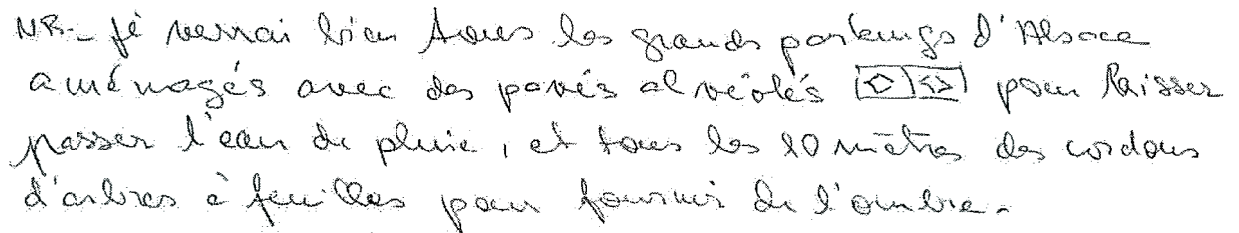 NB - Je verrai bien tous les grands parkings d'Alsace
aménagés avec des pavés alvéolés pour laisser
passer l'eau de pluie, et tous les 10 mètres des cordons
d'arbres à feuilles pour fournir de l'ombre.